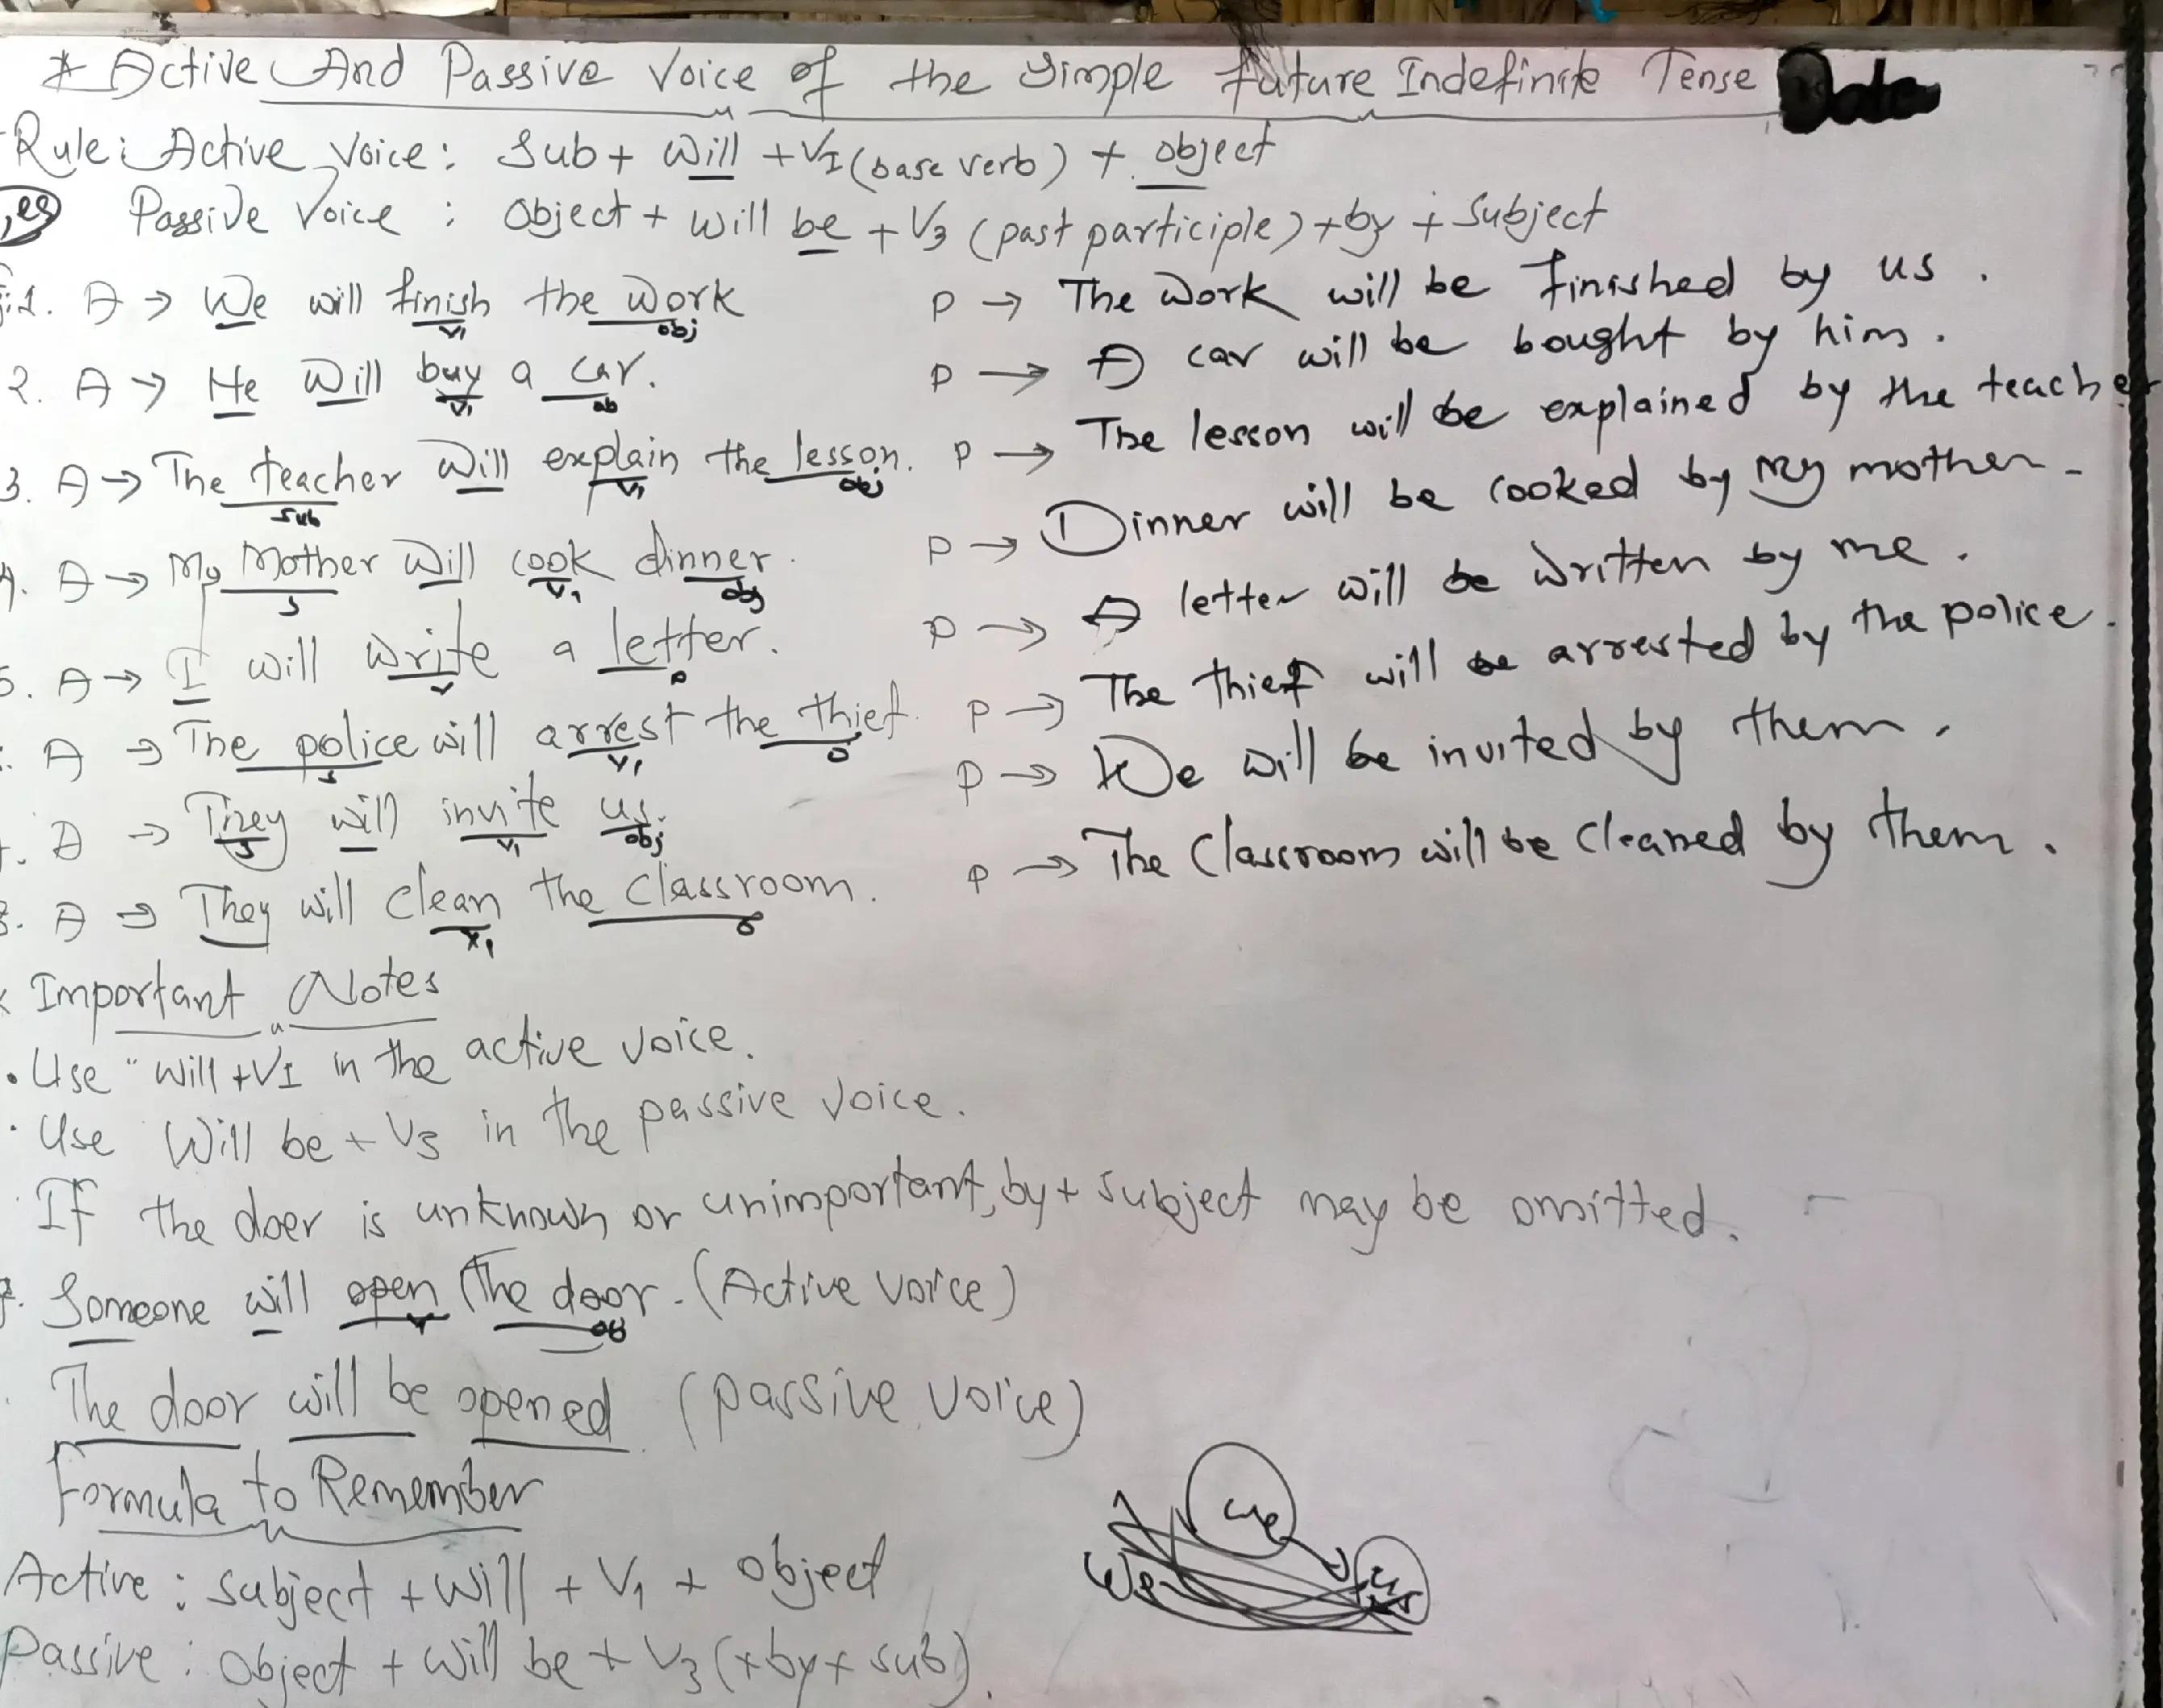 * Active And Passive Voice of the Simple Future Indefinite Tense
Rule: Active Voice: Sub + will + V1 (base verb) + object
Passive Voice : Object + will be + V3 (past participle) + by + Subject
1. A → We will finish the work P → The work will be finished by us.
V1 obj
2. A → He will buy a car. P → A car will be bought by him.
V1 ob
3. A → The teacher will explain the lesson. P → The lesson will be explained by the teacher
sub V1 obj
4. A → My Mother will cook dinner. P → Dinner will be cooked by my mother.
S V1 obj
5. A → I will write a letter. P → A letter will be written by me.
V o
A → The police will arrest the thief. P → The thief will be arrested by the police.
S V1 o
A → They will invite us. P → We will be invited by them.
S V1 obj
8. A → They will clean the classroom. P → The Classroom will be cleaned by them.
V1 o
Important Notes
• Use "will + V1 in the active voice.
• Use Will be + V3 in the passive voice.
If the doer is unknown or unimportant, by + subject may be omitted.
Someone will open the door. (Active Voice)
V ob
The door will be opened. (passive voice)
Formula to Remember
We
We us
Active : subject + will + V1 + object
Passive : object + will be + V3 (+ by + sub).